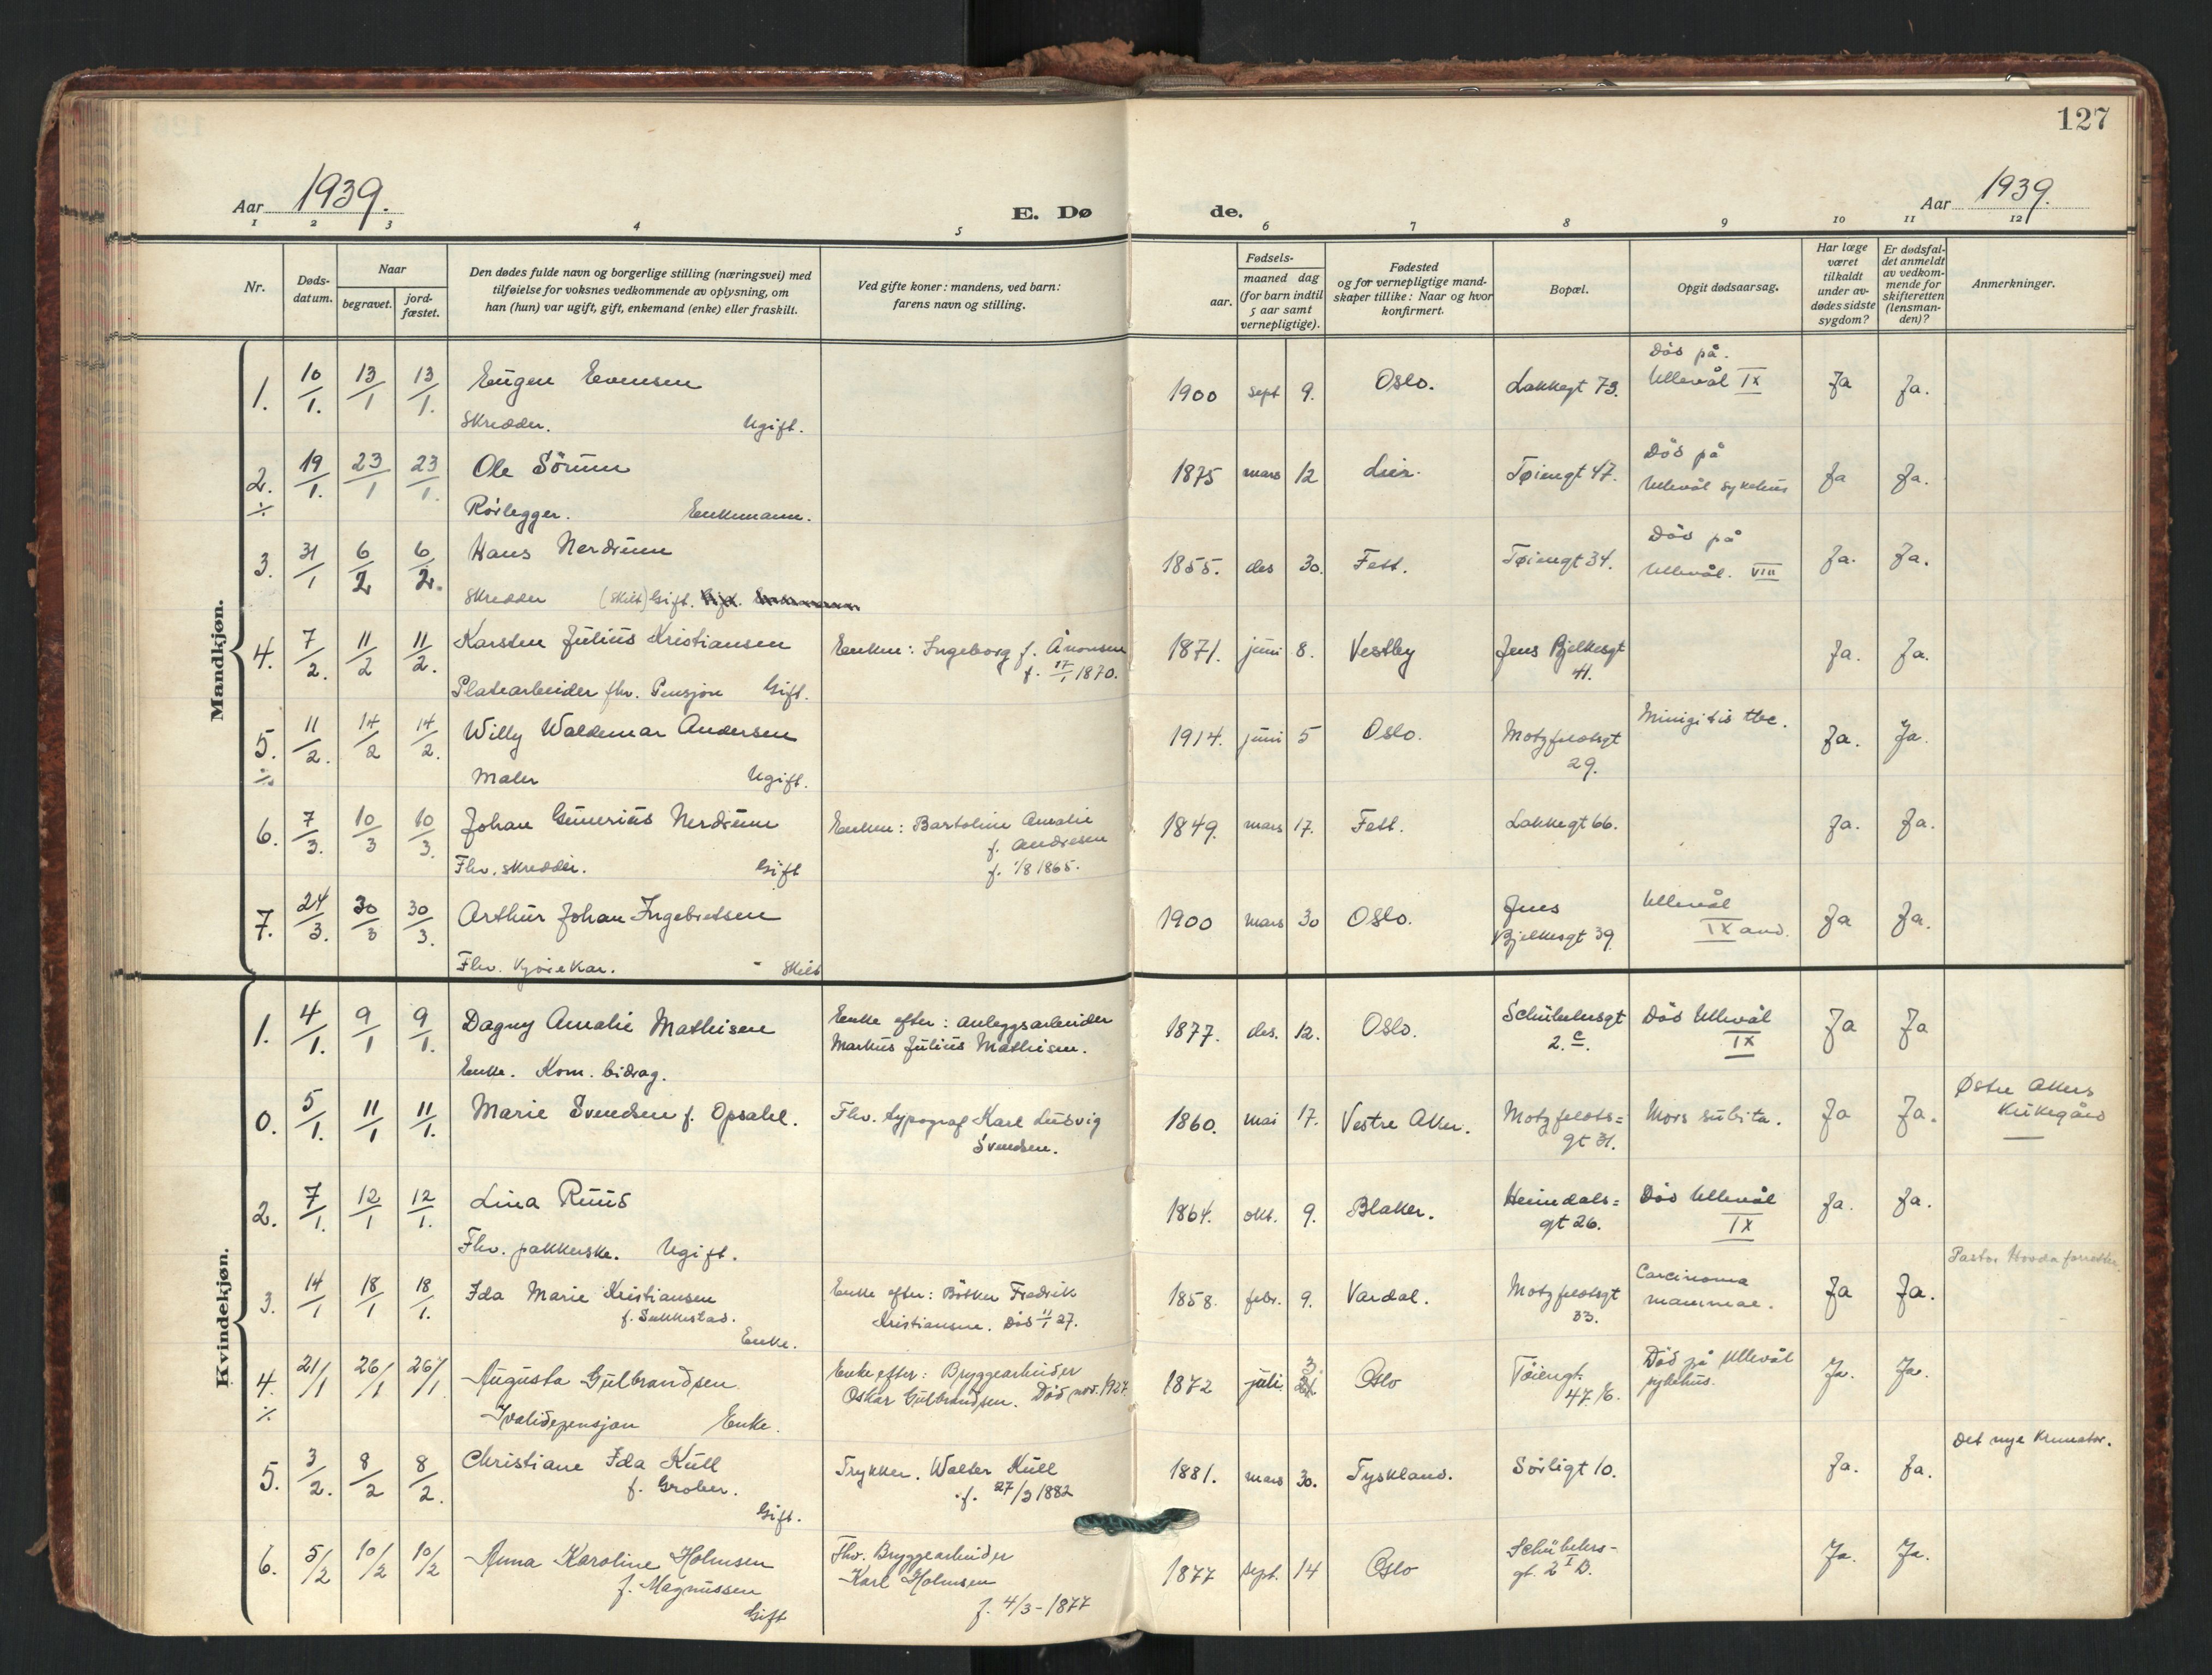 127
Aar 1939.
E. Dø
de.
Aar 1939.
1 2 3 4 5 6 7 8 9 10 11 12
Nr.
Døds-
datum.
Naar
begravet.
jord-
fæstet.
Den dødes fulde navn og borgerlige stilling (næringsvei) med
tilføielse for voksnes vedkommende av oplysning, om
han (hun) var ugift, gift, enkemand (enke) eller fraskilt.
Ved gifte koner: mandens, ved barn:
farens navn og stilling.
Fødsels-
aar.
maaned dag
(for barn indtil
5 aar samt
vernepligtige).
Fødested
og for vernepligtige mand-
skaper tillike: Naar og hvor
konfirmert.
Bopæl.
Opgit dødsaarsag.
Har læge
været
tilkaldt
under av-
dødes sidste
sygdom?
Er dødsfal-
det anmeldt
av vedkom-
mende for
skifteretten
(lensman-
den)?
Anmerkninger.
Mandkjøn.
1. 10/1. 13/1 13/1. Eugen Evensen 1900 sept 9. Oslo. Lakkegt 73. Død på. Ullevål IX Ja Ja.
Skredder. Ugift.
2. ÷ 19/1. 23/1 23/1. Ole Sörum 1875 mars 12 Lier. Tøiengt 47. Död på Ullevål sykehus Ja Ja.
Rörlegger. Enkemann.
3. 31/1 6/2 6/2. Hans Nerdrum 1855. des 30. Fett. Tøiengt 34. Död på Ullevål. VIII Ja. Ja.
Skredder (skilt) Gift.
4. 7/2. 11/2 11/2. Karsten Julius Kristiansen Enken: Ingeborg f. Ånonsen 1871. juni 8. Vestby Jens Bjelkesgt 41. Ja. Ja.
f. 17/1 1870.
Platearbeider fhv. Pensjon Gift.
5. ÷ 11/2. 14/2 14/2. Willy Waldemar Andersen 1914. juni 5 Oslo. Motzfeldtsgt 29. Minigitis tbc. Ja. Ja.
Maler Ugift.
6. 7/3. 10/3 10/3. Johan Gunerius Nerdrum Enken: Bartoline Amalie 1849. mars 17. Fett. Lakkegt 66. Ja. Ja.
f. Andresen
Fhv. skredder. Gift f. 1/8 1865.
7. 24/3. 30/3 30/3. Arthur Johan Ingebretsen 1900 mars 30 Oslo. Jens Bjelkesgt 39. Ullevål IX avd. Ja Ja.
Fhv. kjørekar. - Skilt
Kvindekjøn.
1. 4/1. 9/1 9/1. Dagny Amalie Mathisen Enke efter: Anleggsarbeider 1877. des. 12. Oslo. Schübelersgt 2. c. Död Ullevål IX Ja Ja
Markus Julius Mathisen.
Enke. Kom. bidrag.
0. 5/1. 11/1 11/1. Marie Svendsen f. Opsahl. Fhv. typograf Karl Ludvig 1860. mai 17. Vestre Aker. Motzfeldts= gt 31. Mors subita. Ja Ja. Østre Akers Kirkegård
Svendsen.
2. 7/1. 12/1 12/1. Lina Ruud 1864. okt. 9. Blaker. Heimdals= gt 26. Död Ullevål IX Ja. Ja.
Fhv. pakkerske. Ugift.
3. 14/1 18/1 18/1. Ida Marie Kristiansen Enke efter: Bödker Fredrik 1858. febr. 9. Vardal. Motzfeldtsgt 33. Carcinoma mammae. Ja Ja. Pastor Hovda forretter.
f. Sukkestad. Kristiansen. Död 11/1 27.
Enke.
4. ÷ 21/1 26/1 26/1 Augusta Gulbrandsen Enke efter: Bryggearbeider 1872 juli 3. Oslo Töiengt. 47. 6. Död på Ullevål sykehus. Ja. Ja.
Oskar Gulbrandsen. Död nov. 1927.
Ivalidepensjon Enke.
5. 3/2. 8/2 8/2. Christiane Ida Küll Trykker. Walter Küll 1881. mars 30. Tyskland. Sörligt 10. Ja. Ja. Det nye Kremator.
f. Grober. f. 27/3 1882
Gift.
6. 5/2 10/2 10/2 Anna Karoline Holmsen Fhv. Bryggearbeider 1877 sept. 14 Oslo Schübelers- gt. 2 I B. Ja. Ja.
f. Magnussen Karl Holmsen
Gift f. 4/3 - 1877